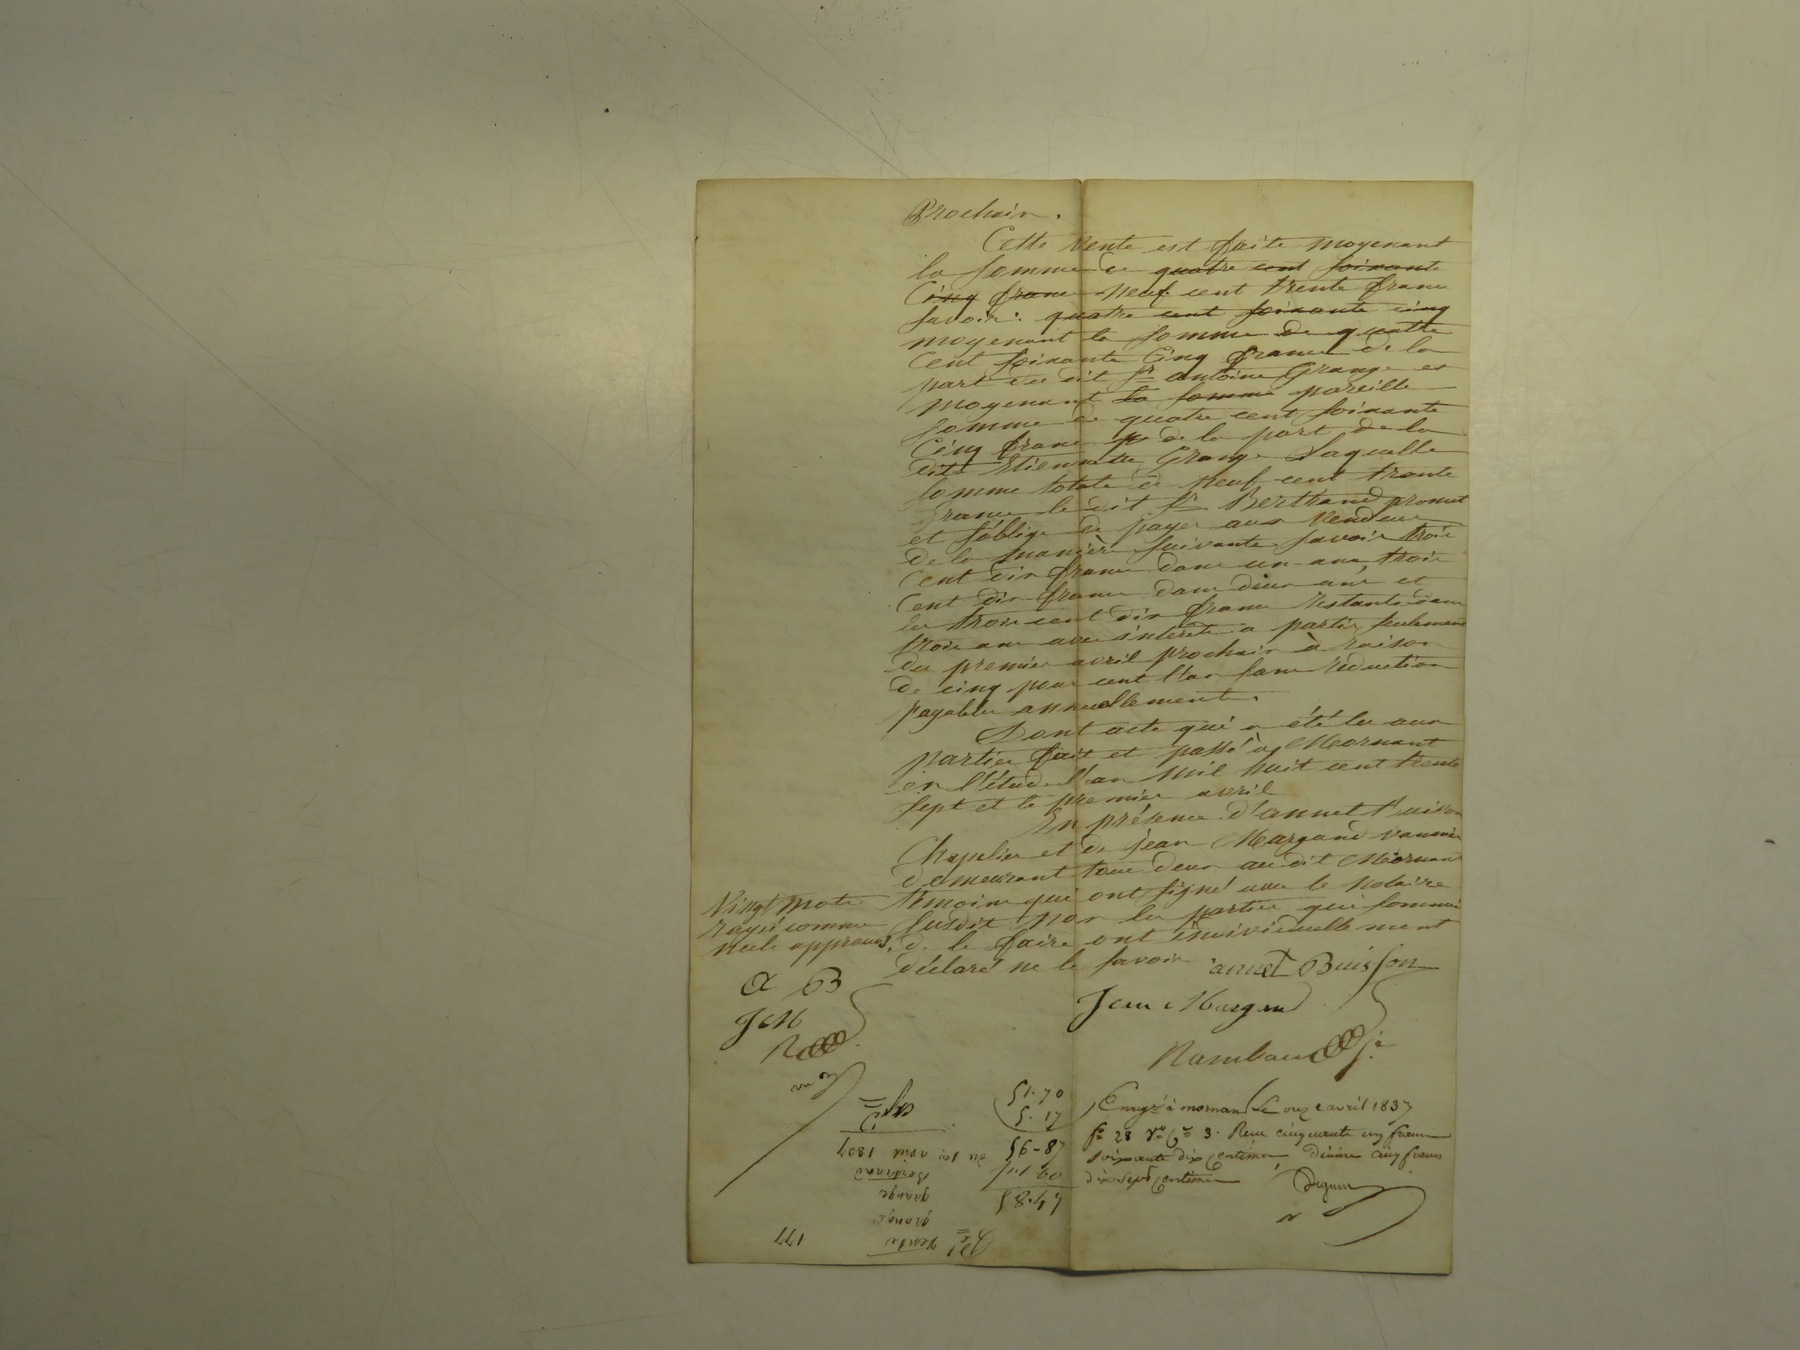 Prochain.
Cette vente est faite moyenant
la somme de quatre cent soixante
Cinq franc neuf cent trente franc
savoir: quatre cent soixante cinq
moyenant la somme de quatre
Cent soixante Cinq franc de la
part du dit sr antoine Grange et
moyenant la somme pareille
somme de quatre cent soixante
Cinq franc de la part de la
dite Etiennette Grange Laquelle
somme totale de neuf cent trente
franc le dit sr Bertrand promet
et s'oblige de payer aux vendeur
de la manière suivante savoir trois
Cent dix franc dans un ans, trois
Cent dix franc dans deux ans et
les trois cent dix franc restants dans
trois ans avec intérêts à partir seulement
du premier avril prochain à raison
de cinq pour cent l'an sans réduction
payables annuellement.
Dont acte qui a été lu aux
parties fait et passé à Mornant
en l'étude l'an mil huit cent trente
sept et le premier avril
En présence d'annet Buisson
Chapelier et de jean Margand vannier
demeurant tous deux au dit Mornant
témoins qui ont signé avec le notaire
susdit non les parties qui sommées
de le faire ont individuellement
déclaré ne le savoir
Vingt mots
rayés comme
nuls approuvés.
A B
J M
R
annet Buisson
Jean Margand
Rambaud
Enregé à mornant Le onze avril 1837
fo 28 Vo Ce 3. Reçu cinquante un francs
soixante dix centimes, Décime cinq francs
dix sept centimes
177
Vente
grange
grange
Bertrand
du 1er avril 1837
51.70
5.17
56-87